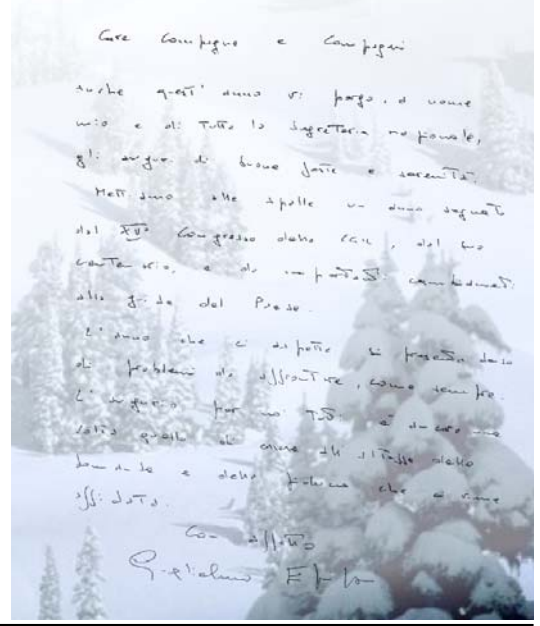 Care Compagne e Compagni
anche quest'anno vi porgo, a nome
mio e di tutta la Segreteria nazionale,
gli auguri di buone feste e serenità.
Mettiamo alle spalle un anno segnato
dal XV° Congresso della CGIL, dal suo
centenario, e da importanti cambiamenti
alla guida del Paese.
L'anno che ci aspetta si presenta denso
di problemi da affrontare, come sempre.
L'augurio per noi tutti è ancora una
volta quello di essere all'altezza delle
domande e della fiducia che ci viene
affidata.
Con affetto
Guglielmo Epifani